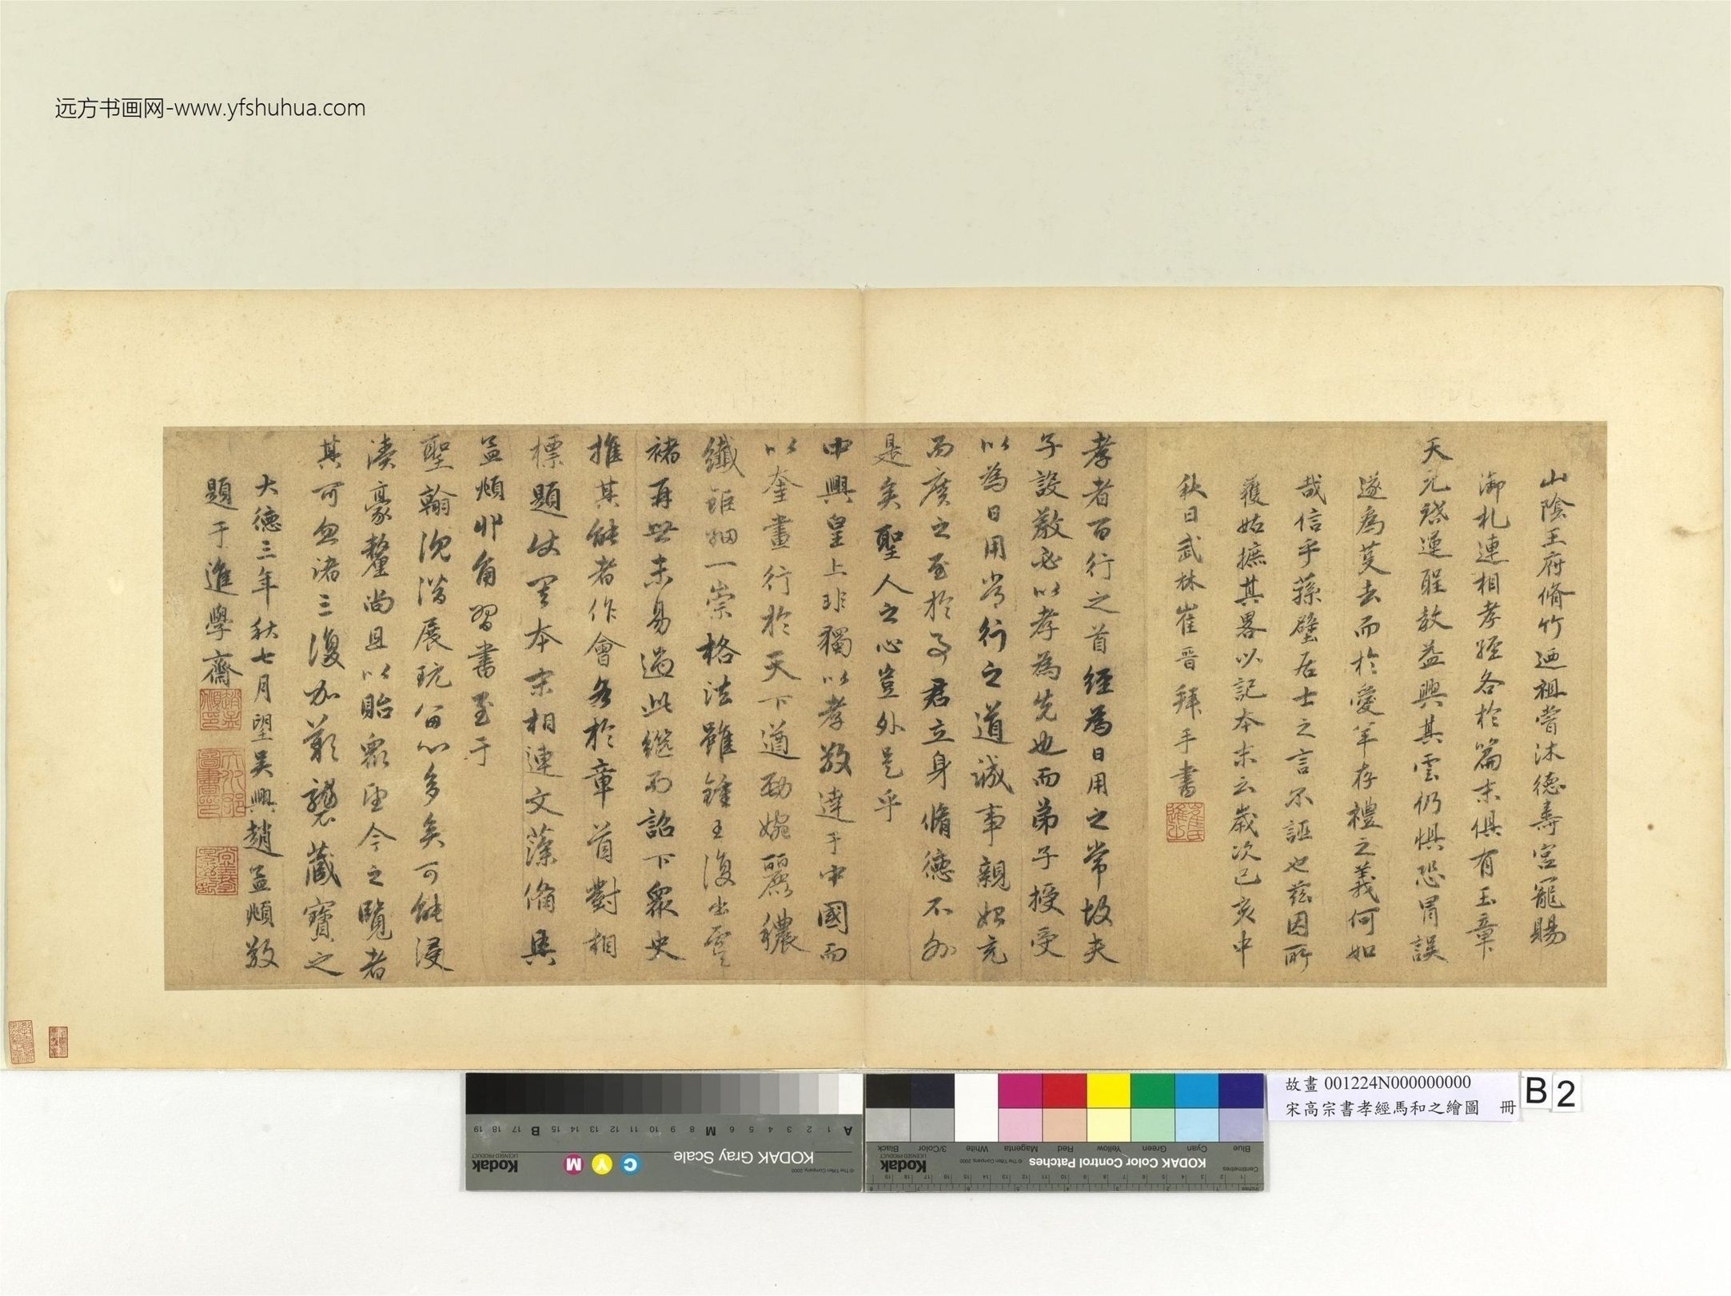 远方书画网-www.yfshuhua.com
山陰王府脩竹廼祖嘗沐德壽宮寵賜
御札連相孝經各於篇末俱有玉章
天元啓運聖教益興其雲仍懼恐罥誤
遂為莫去而於愛羊存禮之義何如
哉信乎蓀壁居士之言不誣也茲因所
獲姑摭其畧以記本末云歲次己亥中
秋日武林崔晋拜手書
孝者百行之首經為日用之常故夫
子設教必以孝為先也而弟子授受
以為日用常行之道誠事親始充
而廣之至於事君立身脩德不外
是矣聖人之心豈外是乎
中興皇上非獨以孝敬達于中國而
以奎畫行於天下遒勁婉麗穠
纖鉅細一崇格法雖鍾王復出虞
褚再世未易過此繼而詔下衆史
推其能者作會各於章首對相
標題此實本宋相連文藻俻具
孟頫丱角習書至于
聖翰沉潛展玩留心多矣可能浸
凑豪釐尚且以貽衆望今之覽者
其可忽諸三復加歎襲藏寶之
大德三年秋七月望吳興趙孟頫敬
題于進學齋
故畫 001224N000000000
宋高宗書孝經馬和之繪圖 冊
B 2
KODAK Gray Scale
Kodak
C Y M
A 1 2 3 4 5 6 M 8 9 10 11 12 13 14 15 B 17 18 19
KODAK Color Control Patches
Kodak
Blue Cyan Green Yellow Red Magenta White 3/Color Black